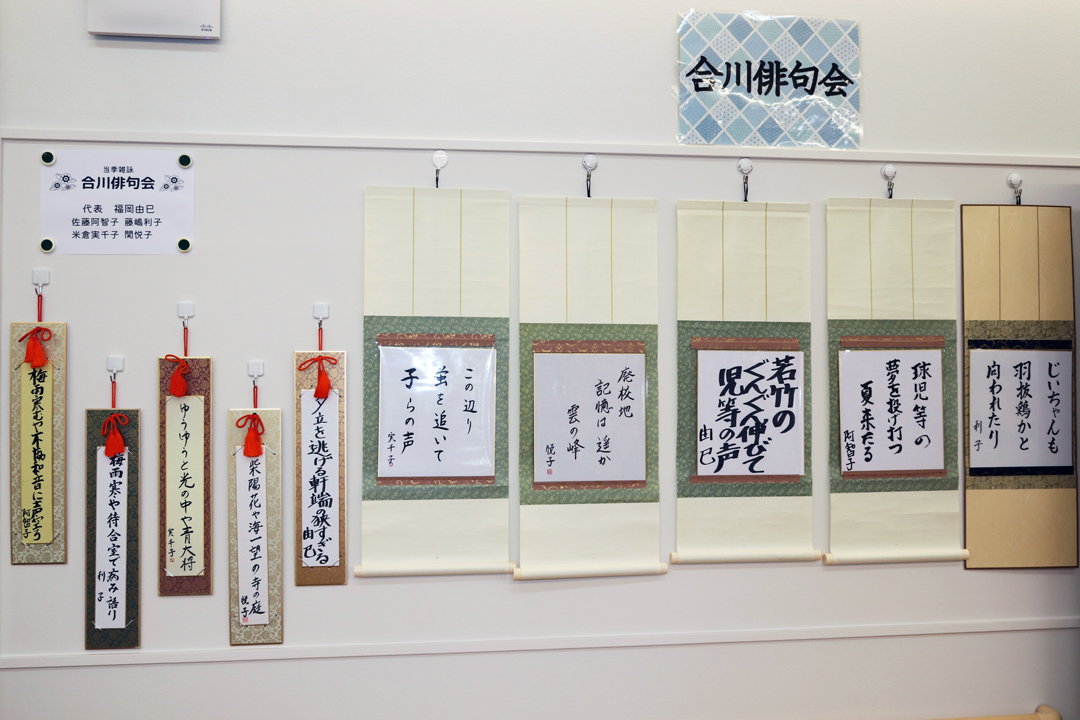 合川俳句会
当季雑詠
合川俳句会
代表 福岡由巳
佐藤阿智子 藤嶋利子
米倉実千子 関悦子
梅雨寒むや不協和音に
阿智子
梅雨寒や待合室で病み語り
利子
ゆうゆうと光の中や青大将
実千子
紫陽花や海一望の寺の庭
悦子
夕立を逃げる軒端の狭すぎる
由巳
この辺り
蛍を追いて
子らの声
実千子
廃校地
記憶は遥か
雲の峰
悦子
若竹の
ぐんぐん伸びて
児等の声
由巳
球児等の
夢を投げ打つ
夏来たる
阿智子
じいちゃんも
羽抜鶏かと
問われたり
利子